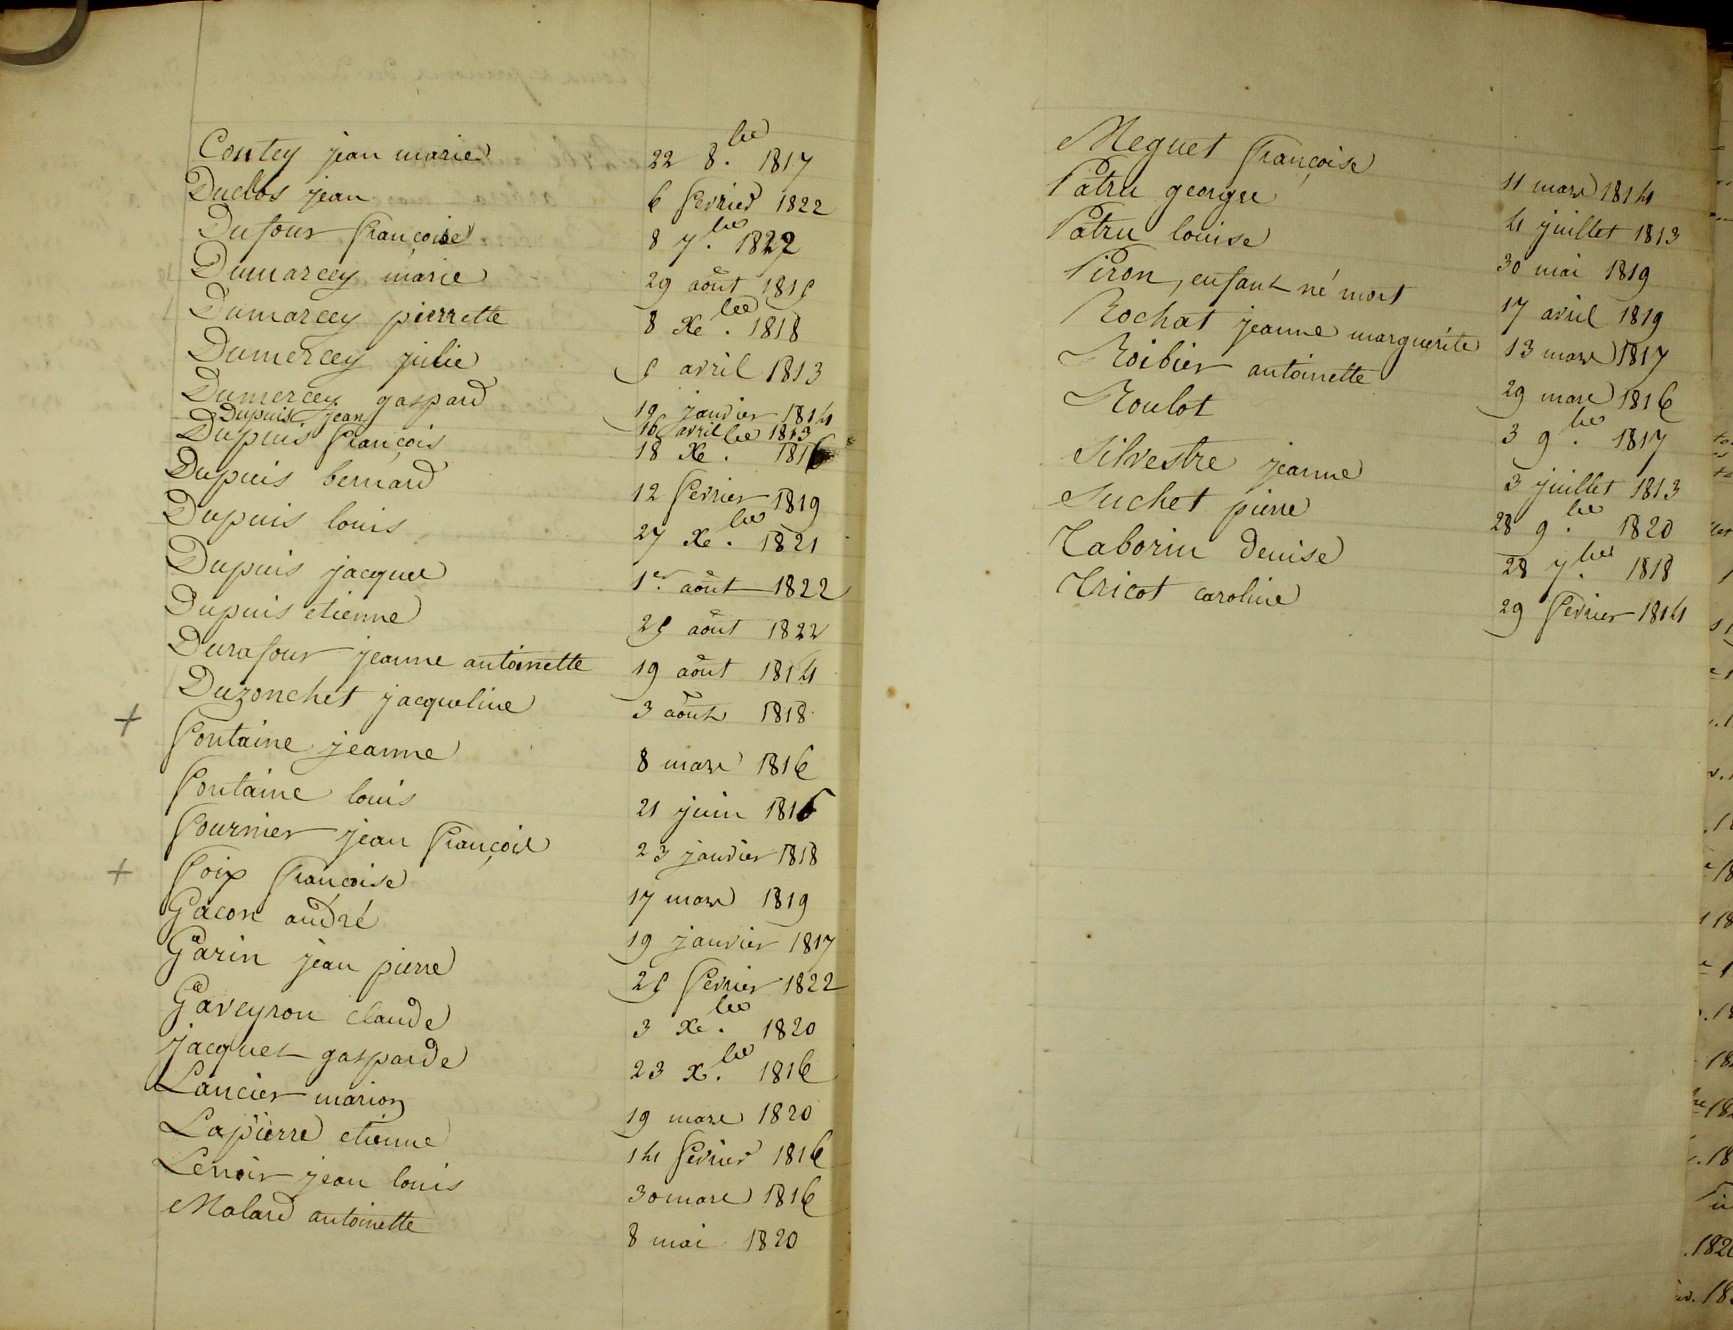 Contey jean marie 22 8.bre 1817
Duclos jean 6 fevrier 1822
Dufour françoise 8 7.bre 1822
Dumarcey marie 29 août 1815
Dumarcey pierrette 8 Xe.bre 1818
Dumercey julie 5 avril 1813
Dumercey gaspard 19 janvier 1814
Dupuis jean 16 avril 1813
Dupuis françois 18 Xe.bre 1816
Dupuis bernard 12 fevrier 1819
Dupuis louis 27 Xe.bre 1821
Dupuis jacques 1er. août 1822
Dupuis etienne 25 août 1822
Durafour jeanne antoinette 19 août 1814
Duzonchet jacqueline 3 août 1818
+ fontaine jeanne 8 mars 1816
fontaine louis 21 juin 1816
fournier jean françois 23 janvier 1818
+ foix françoise 17 mars 1819
Gacon andré 19 janvier 1817
Garin jean pierre 25 fevrier 1822
Gaveyron claude 3 Xe.bre 1820
jacquet gasparde 23 X.bre 1816
Lancier marion 19 mars 1820
Lapierre etienne 14 fevrier 1816
Lenoir jean louis 30 mars 1816
Malard antoinette 8 mai 1820
Meguet françoise 11 mars 1814
Patru george 4 juillet 1813
Patru louise 30 mai 1819
Piron, enfant né mort 17 avril 1819
Rochat jeanne marguerite 13 mars 1817
Roibier antoinette 29 mars 1816
Roulot 3 9.bre 1817
Silvestre jeanne 3 juillet 1813
Suchet pierre 28 9.bre 1820
Taborin denise 28 7.bre 1818
Tricot caroline 29 fevrier 1814